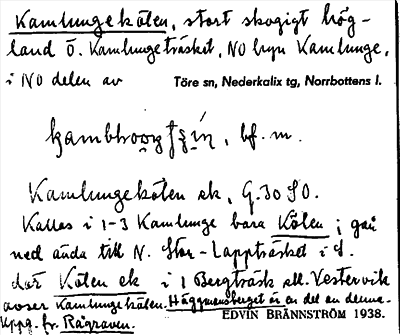 Kamlungekölen, stort skogigt hög-
land Ö. Kamlungeträsket, NO byn Kamlunge,
i NO delen av Töre sn, Nederkalix tg, Norrbottens l.
bf. m.
Kamlungekölen ek, G. 30 SO.
Kallas i 1-3 Kamlunge bara Kölen; går
ned ända till N. Stor-Lappträsket i S.
där Kölen ek i 1 Bergträsk ell. Vestervik
avser Kamlungekölen. Häggmansberget är en del en denna.
Uppg. fr. Rågraven.
EDVIN BRÄNNSTRÖM 1938.